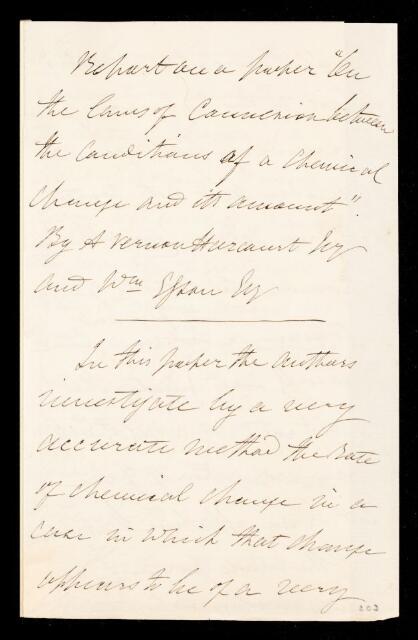 Report on a paper "On
the laws of Connexion between
the Conditions of a Chemical
Change and its amount".
By A Vernon Harcourt Esq
and Wm Esson Esq
In this paper the authors
investigate by a very
accurate method the Rate
of chemical change in a
case in which that change
appears to be of a very
203